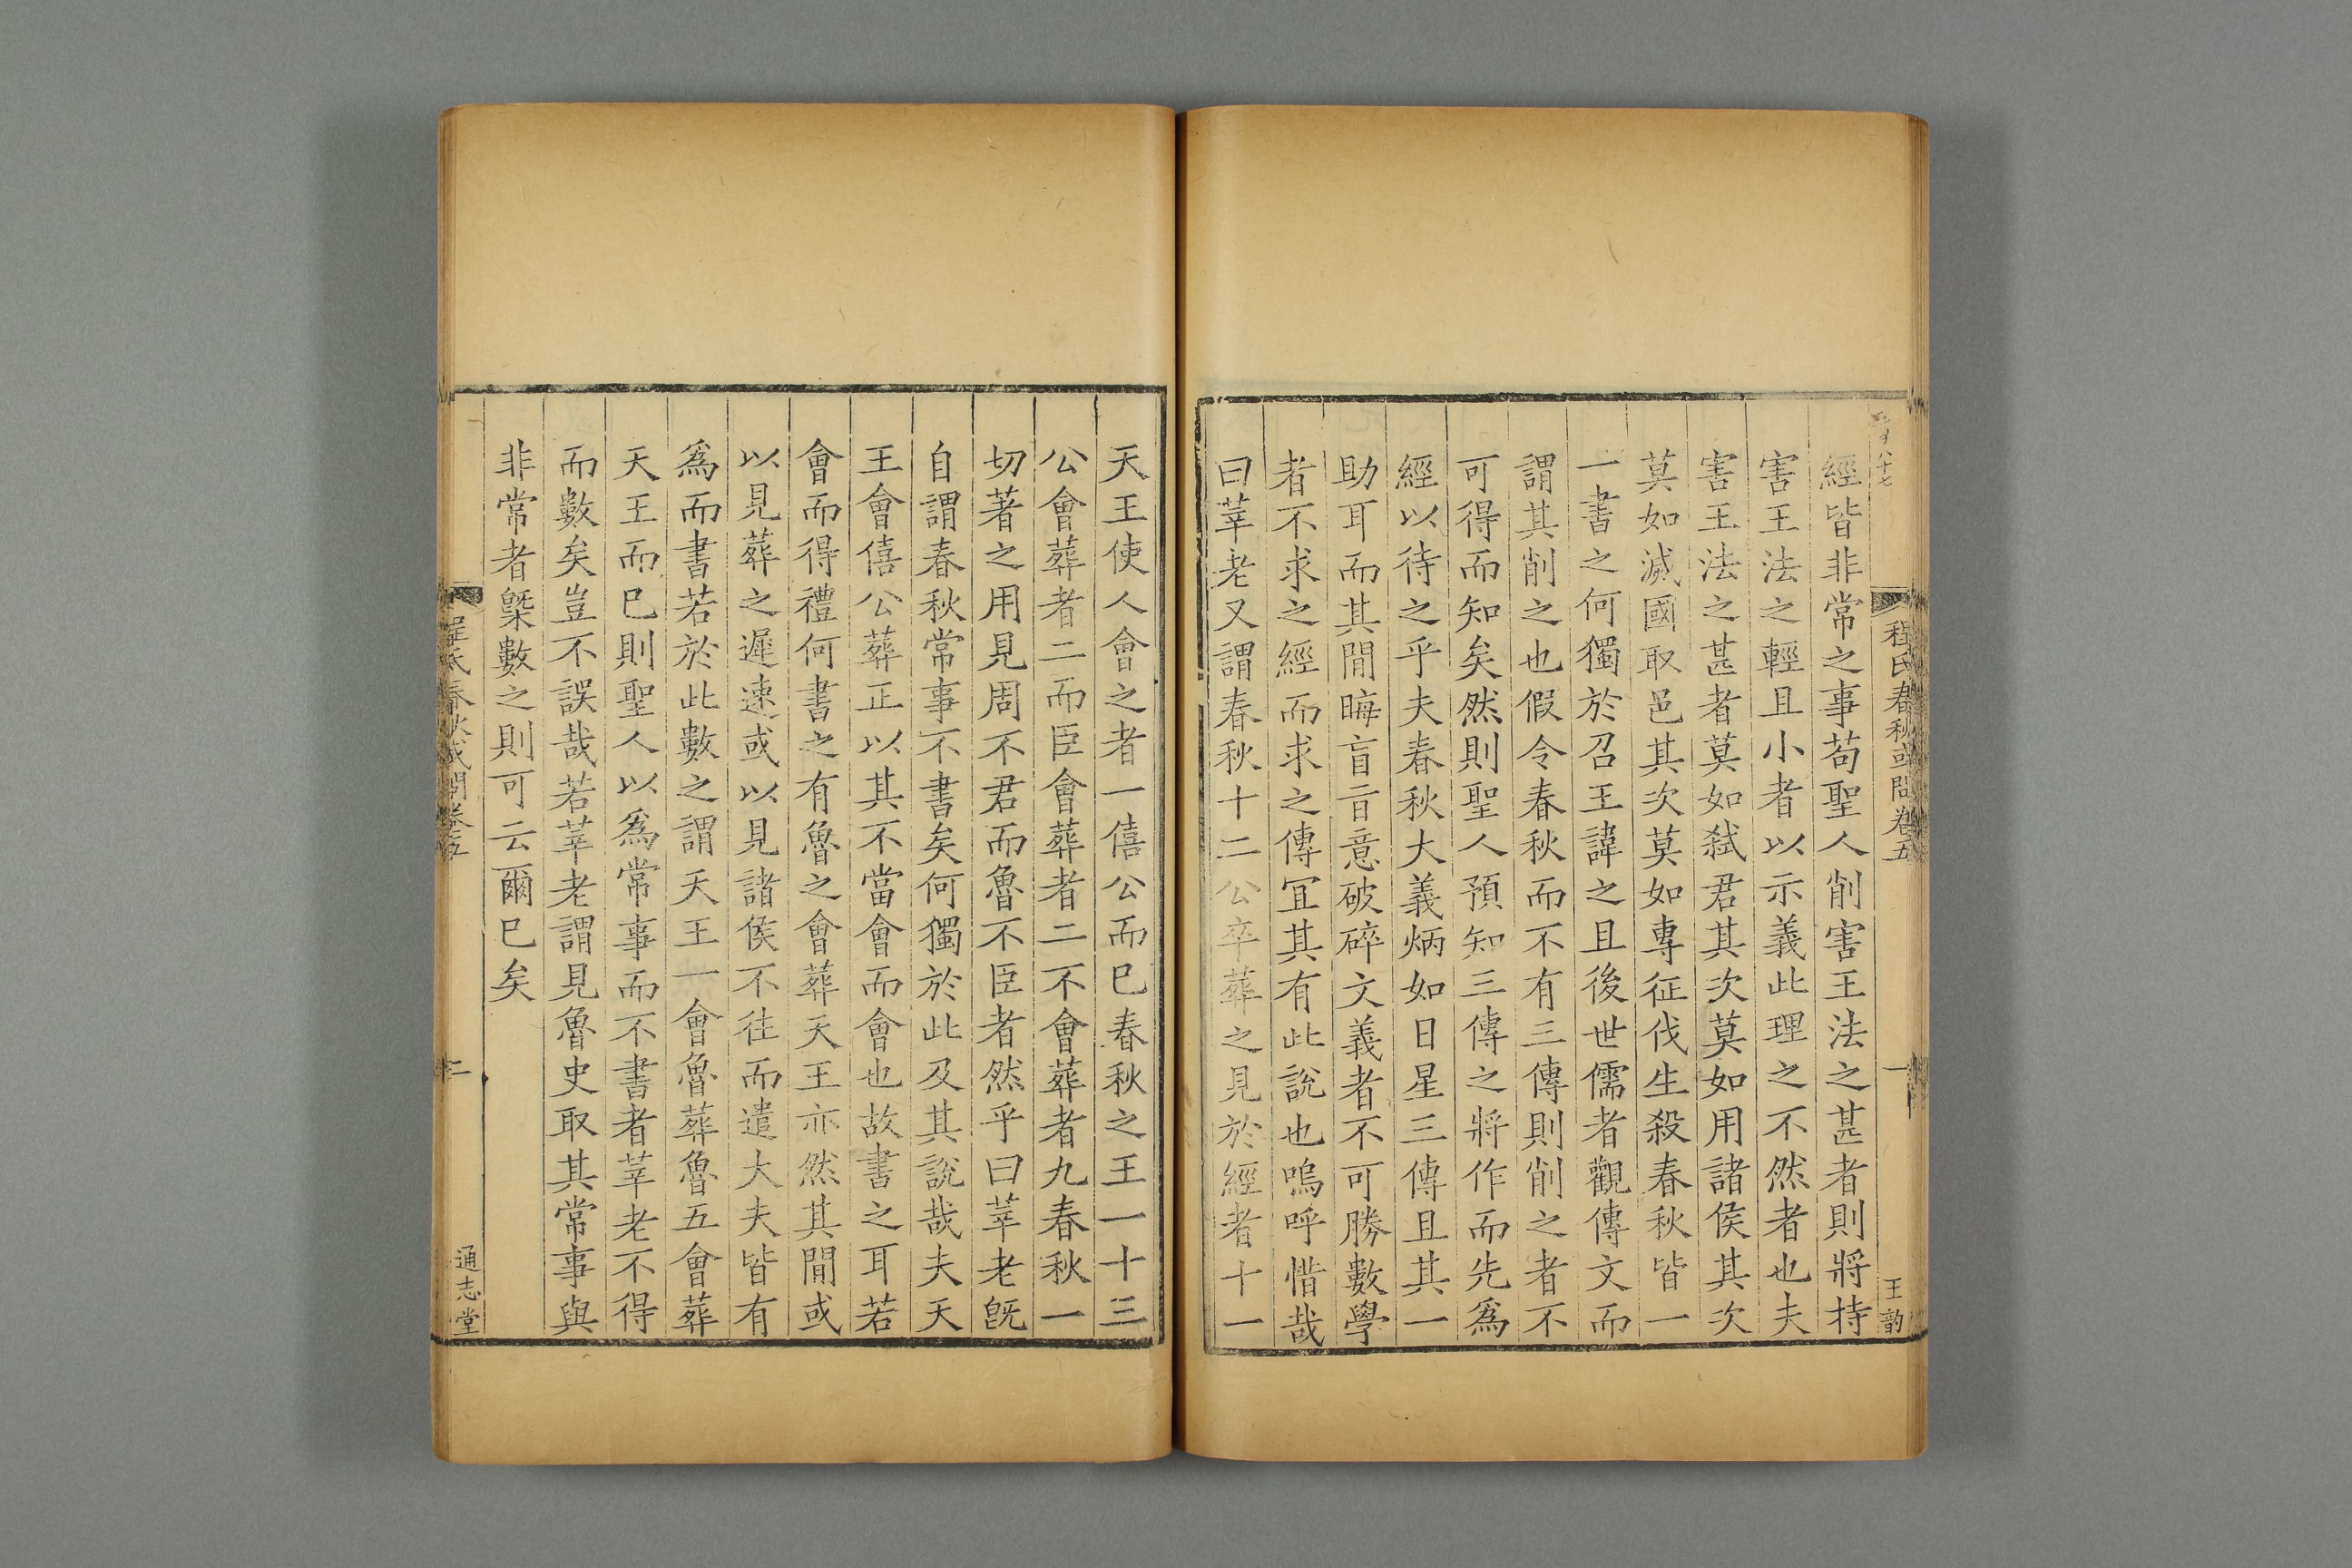 程氏春秋或問卷五
一
王韵
經皆非常之事苟聖人削害王法之甚者則將持
害王法之輕且小者以示義此理之不然者也夫
害王法之甚者莫如弑君其次莫如用諸侯其次
莫如滅國取邑其次莫如專征伐生殺春秋皆一
一書之何獨於召王諱之且後世儒者觀傳文而
謂其削之也假令春秋而不有三傳則削之者不
可得而知矣然則聖人預知三傳之將作而先爲
經以待之乎夫春秋大義炳如日星三傳且其一
助耳而其閒晦盲㫖意破碎文義者不可勝數學
者不求之經而求之傳宜其有此說也嗚呼惜哉
曰莘老又謂春秋十二公卒葬之見於經者十一
天王使人會之者一僖公而已春秋之王一十三
公會葬者二而臣會葬者二不會葬者九春秋一
切著之用見周不君而魯不臣者然乎曰莘老旣
自謂春秋常事不書矣何獨於此及其說哉夫天
王會僖公葬正以其不當會而會也故書之耳若
會而得禮何書之有魯之會葬天王亦然其閒或
以見葬之遲速或以見諸侯不往而遣大夫皆有
爲而書若於此數之謂天王一會魯葬魯五會葬
天王而已則聖人以爲常事而不書者莘老不得
而數矣豈不誤哉若莘老謂見魯史取其常事與
非常者槩數之則可云爾已矣
程氏春秋或問卷五
二
通志堂